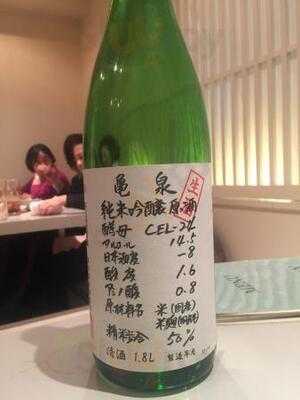 生
亀泉
純米吟醸原酒
酵母 CEL-24
アルコール 14.5
日本酒度 -8
酸度 1.6
アミノ酸 0.8
原材料名 米(国産)
米麹(国産米)
精米歩合 50%
清酒 1.8L 製造年月
MENU